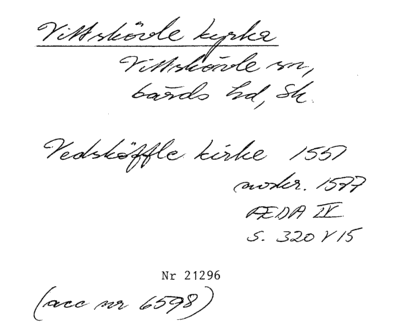 Vittskövle kyrka
Vittskövle sn,
Gärds hd, Sk.
Vedsköffle kirke 1557
moder. 1577
ÆDA IV
s. 320 V 15
Nr 21296
(acc nr 6598)